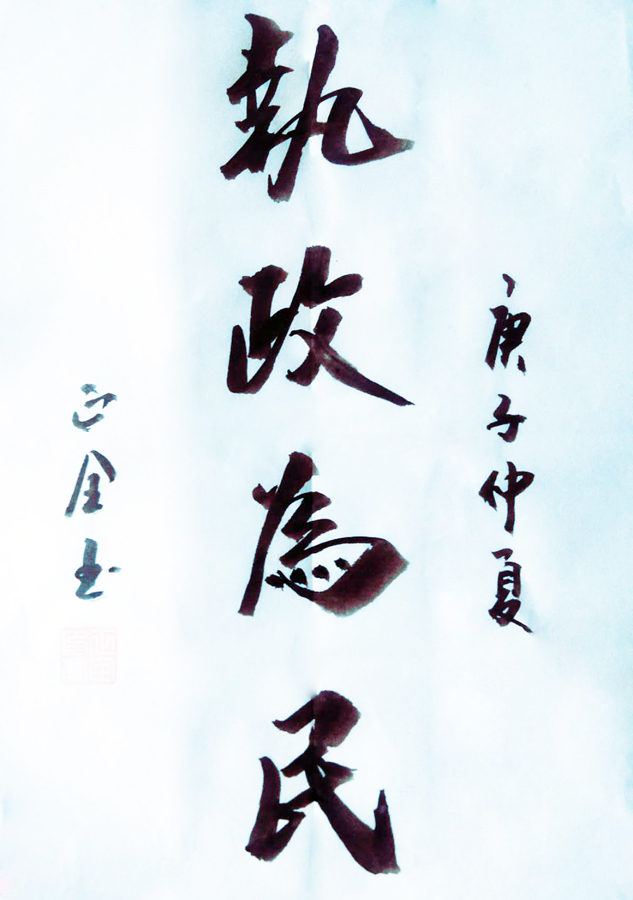 庚子仲夏
執政為民
正全书